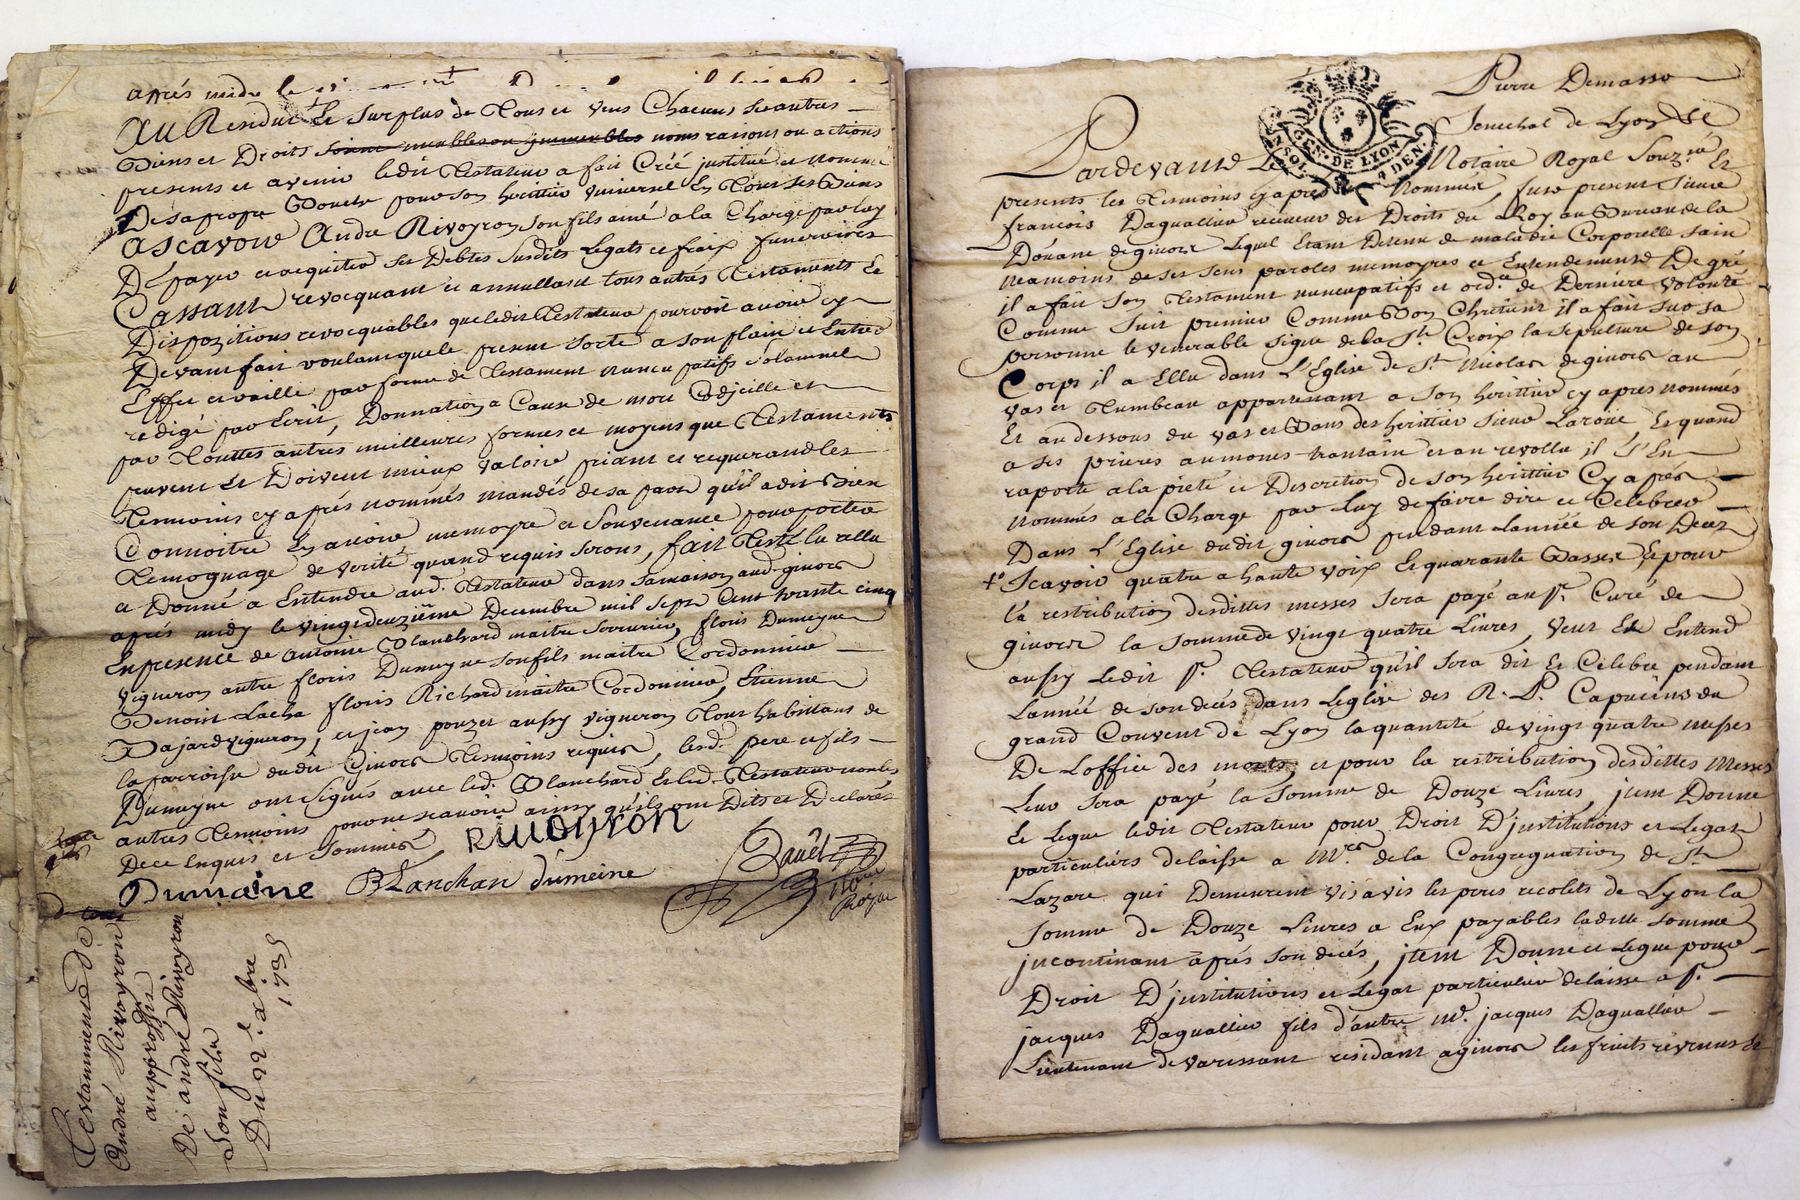 après midy le
Au Rendue Le surplus de Tous et uns Chacuns ses autres
Biens et Droits meubles ou jmmeubles noms raisons ou actions
presents et avenir ledit Testateur a fait Créé justitué et nommé
De sa propre Bouche pour son heritier universel En Tous ses Biens
Ascavoir André Rivoyron son fils ainé a la Charge par luy
De payer et acquiter ses Debtes susdits Legats et fraix funeraires
Cassant revocquant et annullant tous autres Testaments et
Dispozitions revocquables que ledit Testateur pourroit avoir cy
Devant fait voulant que le present sorte a son plain et Entier
Effet et vaille par forme de Testament nuncupatifs solamnel
redigé par Ecrit, Donnation a Cause de mort Codjcille et
par Touttes autres meilleures formes et moyens que Testaments
peuvent et Doivent mieux valoir priant et requerand les
Tesmoins cy après nommés mandés de sa part qu'il a dit Bien
Connoitre En avoir memoyre et Souvenance pour porter
Temognage de verité quand requis seront, fait Testé lu rellu
a Donné a Entendre aud. Testateur dans sa maison aud. givors
après midy le vingt deuzième Decembre mil sept Cent trante cinq
En presence de Antoine Blanchard maitre serrurier, floris Dumeyne
vigneron autre floris Dumeyne son fils maitre Cordonnier
Benoist Lacha floris Richard maitre Cordonnier, Etienne
Bajard vigneron, et jean pouzet aussy vigneron Tous habittans de
la parroisse dudit Givors Tesmoins requis, lesd. pere et fils
Dumeyne ont signés avec led. Blanchard Et led. Testateur non les
autres Tesmoins pour ne scavoir ainsy qu'ils ont Dits et Declarés
De ce Enquis et sommés, RiWoyron
Dumaine BLanchan dumeine
Noue
Royal
Testamment de
André Rivoyron
au proffit
De andré Rivoyron
Son fils
Du 22e. xbre
1735
Pierre Demasso
Senechal de Lyon
GN. DE LYON
4 DEN.
Pardevant Le Notaire Royal Souz.né Et
presents les Tesmoins cy après Nommés, fust present sieur
françois Daguallier receveur des Droits du Roy au Bureau de la
Doüane de givors Lequel Etant Detenu de maladie Corporelle sain
neamoins de ses sens paroles memoyres et Entendement De gré
il a fait son Testament nuncupatifs et ord.re de Derniere volonté
Comme suit premier Comme Bon Chretient il a fait sur sa
personne le venerable signe de la Ste. Croix la sepulture de son
Corps il a Ellu dans L'Eglise de St. Nicolas de givors au
vas et Tumbeau appartenant a son heritier cy apres nommés
Et au dessous du vas et Bans des heritier sieur Laroue Et quand
a ses prieres aumones trantain et an revollu il s'En
raporte a la pieté et Discretion de son heritier Cy apres
nommés a la Charge par Luy de faire dire et Celebrer
Dans L'Eglise dudit givors pendant Lannée de son Deces
Scavoir quatre a haute voix Et quarante Basses Et pour
la restribution desdittes messes sera payé au sr. Curé de
givors la somme de vingt quatre Livres, veut Et Entend
aussy Ledit sr. Testateur qu'il sera dit Et Celebré pendant
Lannée de son decés dans Leglise des R. P. Capucins du
grand Couvent de Lyon la quantité de vingt quatre messes
De Loffice des morts et pour la restribution desdittes Messes
Leur sera payé la somme de Douze Livres, jtem Donne
Et Legue ledit Testateur pour Droit D'justitutions et Legat
particuliers delaisse a Mrs. de la Congreguation de St.
Lazare qui Demeurent vis avis les peres recolets de Lyon la
somme de Douze Livres a Eux payables laditte somme
jncontinant après son decés, jtem Donne et Legue pour
Droit D'justitutions et Legat particulier delaisse a sr.
jacques Daguallier fils d'autre Me. jacques Daguallier
Lieutenant de varissant residant a givors les fruits revenus et